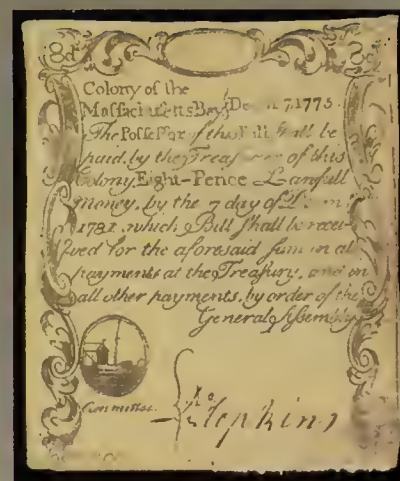 8d
Colony of the
Maſſachuſetts Bay, 7, 1775.
The Poſſeſſor of this Bill ſhall be
paid, by the Treaſurer of this
Colony, Eight-Pence Lawfull
money, by the 7 day of
1781, which Bill ſhall be recei-
ved for the aforeſaid ſum in all
payments at the Treaſury, and in
all other payments, by order of the
General Aſſembly
Committee.